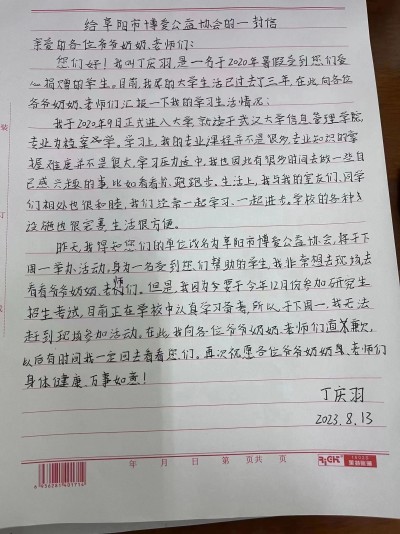 给阜阳市博爱公益协会的一封信
亲爱的各位爷爷奶奶、老师们:
您们好!我叫丁庆羽,是一名于2020年暑假受到您们爱
心捐赠的学生。目前,我的大学生活已过去了三年,在此向各位
爷爷奶奶、老师们汇报一下我的学习生活情况:
我于2020年9月正式进入大学,就读于武汉大学信息管理学院,
专业为档案学。学习上,我的专业课程并不是很多,专业知识的掌
握难度并不是很大,学习压力适中,我也因此有很多时间去做一些自
己感兴趣的事,比如看看书,跑跑步。生活上,我与我的室友们、同学
们相处也很和睦,我们经常一起学习,一起进步。学校的各种
设施也很完善,生活很方便。
昨天,我得知您们的单位改名为阜阳市博爱公益协会,将于下
周一举办活动。身为一名受到您们帮助的学生,我非常想去现场去
看看爷爷奶奶、老师们。但是,我因为要于今年12月份参加研究生
招生考试,目前正在学校中认真学习备考,所以,于下周一,我无法
赶到现场参加活动。在此,我向各位爷爷奶奶、老师们道歉,
以后有时间我一定回去看看您们。再次祝愿各位爷爷奶奶、老师们
身体健康、万事如意!
丁庆羽
2023.8.13
年 月 日 第 页共 页